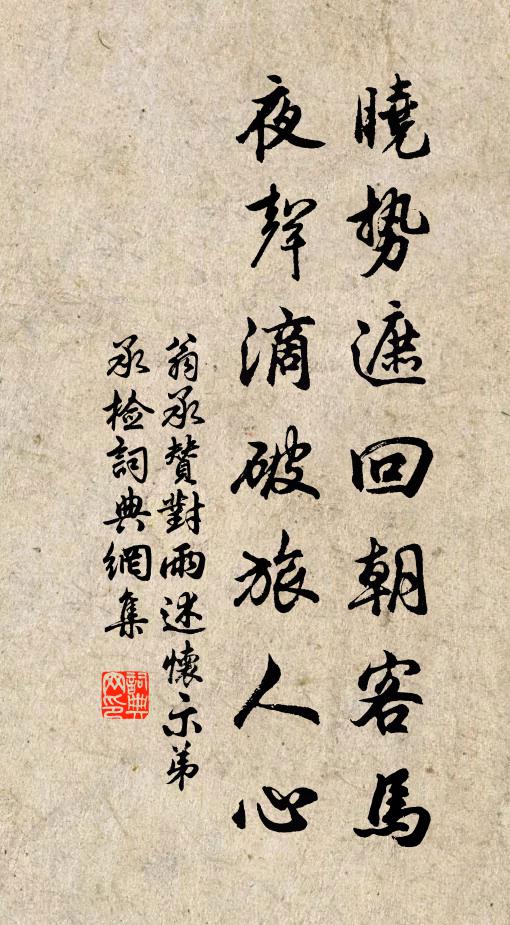 曉勢遮回朝客馬
夜聲滴破旅人心
翁承贊對雨述懷示弟
承檢詞典網集
詞典網印